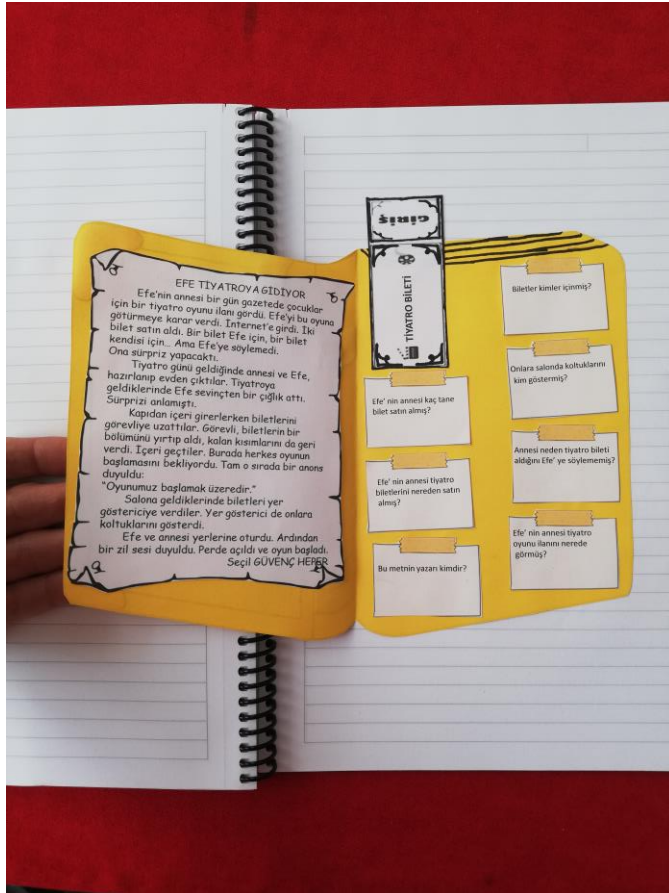 EFE TİYATROYA GİDİYOR
Efe'nin annesi bir gün gazetede çocuklar
için bir tiyatro oyunu ilanı gördü. Efe'yi bu oyuna
götürmeye karar verdi. İnternet'e girdi. İki
bilet satın aldı. Bir bilet Efe için, bir bilet
kendisi için... Ama Efe'ye söylemedi.
Ona sürpriz yapacaktı.
Tiyatro günü geldiğinde annesi ve Efe,
hazırlanıp evden çıktılar. Tiyatroya
geldiklerinde Efe sevinçten bir çığlık attı.
Sürprizi anlamıştı.
Kapıdan içeri girerlerken biletlerini
görevliye uzattılar. Görevli, biletlerin bir
bölümünü yırtıp aldı, kalan kısımlarını da geri
verdi. İçeri geçtiler. Burada herkes oyunun
başlamasını bekliyordu. Tam o sırada bir anons
duyuldu:
"Oyunumuz başlamak üzeredir."
Salona geldiklerinde biletleri yer
göstericiye verdiler. Yer gösterici de onlara
koltuklarını gösterdi.
Efe ve annesi yerlerine oturdu. Ardından
bir zil sesi duyuldu. Perde açıldı ve oyun başladı.
Seçil GÜVENÇ HEPER
GİRİŞ
TİYATRO BİLETİ
Efe' nin annesi kaç tane
bilet satın almış?
Efe' nin annesi tiyatro
biletlerini nereden satın
almış?
Bu metnin yazarı kimdir?
Biletler kimler içinmiş?
Onlara salonda koltuklarını
kim göstermiş?
Annesi neden tiyatro bileti
aldığını Efe' ye söylememiş?
Efe' nin annesi tiyatro
oyunu ilanını nerede
görmüş?